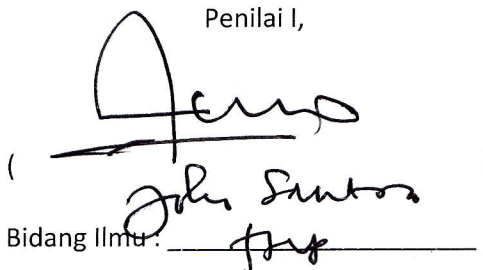 Penilai I,
(
John Santosa
Bidang Ilmu :